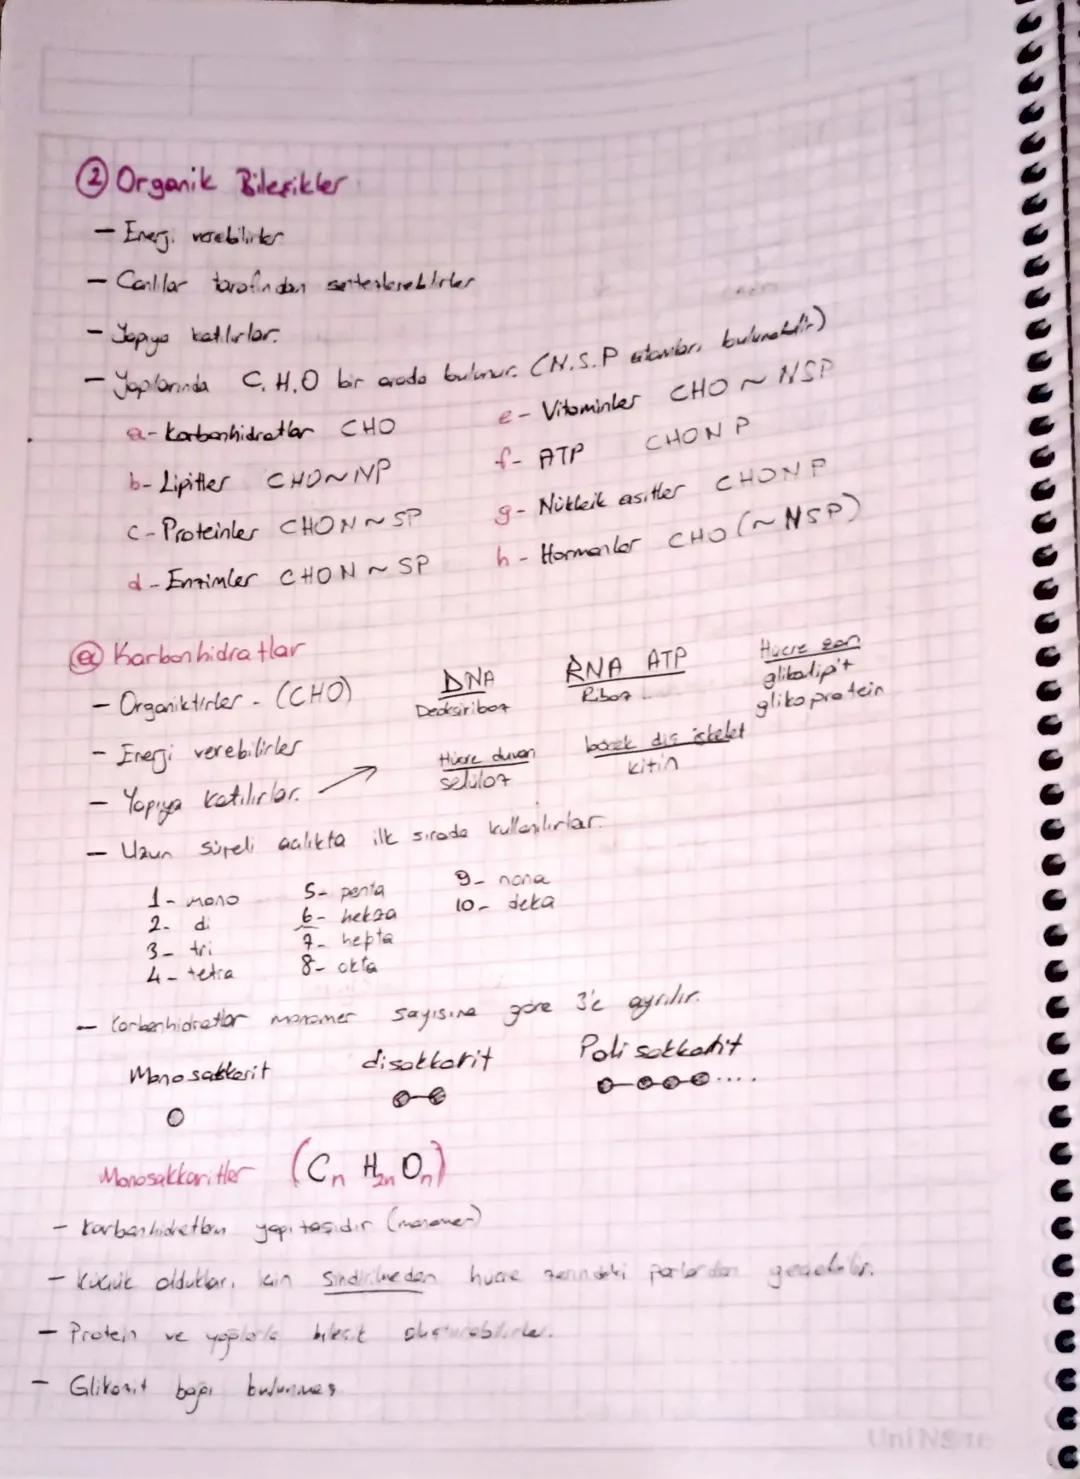 2 Organik Bileşikler
- Energi verebilirler
- Canlılar tarafından sentezlenebilirler
- Yapıya katılırlar.
- Yapılarında C, H, O bir arada bulunur. (N.S.P atomları bulunabilir)
a- Karbonhidratlar CHO
b- Lipitler CHO~NP
c- Proteinler CHON~SP
d- Enzimler CHON~SP
e- Vitaminler CHO~NSP
f- ATP CHONP
g- Nükleik asitler CHONP
h- Hormonlar CHO (~NSP)
a Karbonhidratlar
- Organiktirler - (CHO)
- Energi verebilirler
- Yapıya katılırlar. →
DNA
Deoksiriboz
RNA ATP
Riboz
Hücre zarı
glikolipit
glikoprotein
Hücre duvarı
selüloz
böcek dış iskelet
kitin
- Uzun süreli açlıkta ilk sırada kullanılırlar.
1- mono
2- di
3- tri
4- tetra
5- penta
6- hekza
7- hepta
8- okta
9- nona
10- deka
- Karbonhidratlar monomer sayısına göre 3'e ayrılır.
Monosakkarit disakkarit Polisakkarit
Monosakkaritler (CnH2nOn)
- Karbonhidratların yapıtaşıdır (monomer)
- Küçük oldukları için sindirilmeden hücre zarındaki porlardan geçebilir.
- Protein ve yağlarla bileşik oluşturabilirler.
- Glikozit bağı bulunmaz
UniNote